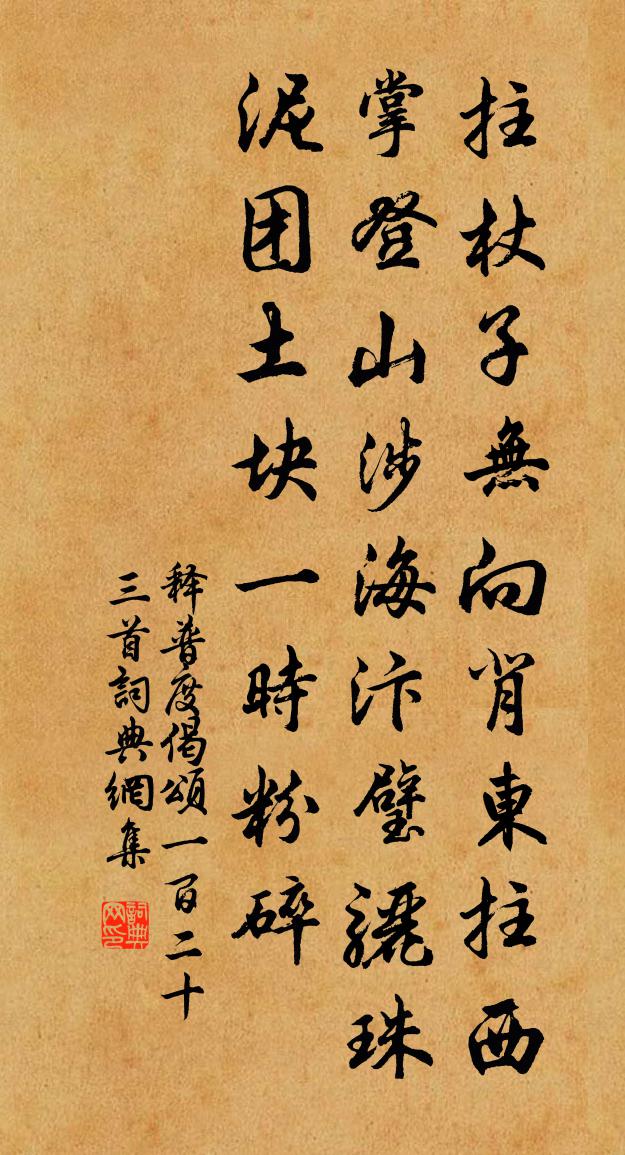 拄杖子無向背東拄西
掌登山涉海汴璧驪珠
泥团土块一時粉碎
释普度偈頌一百二十
三首詞典網集
詞典网印